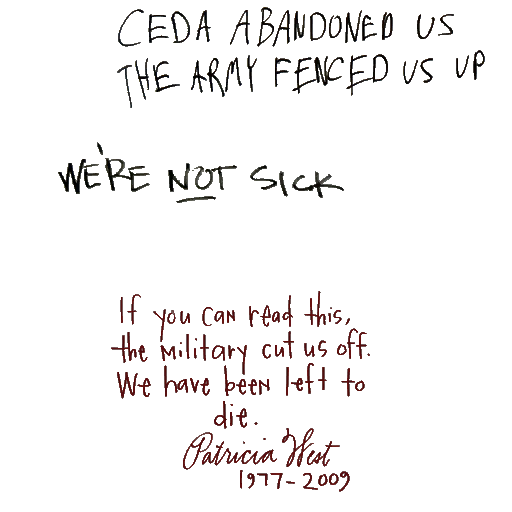 CEDA ABANDONED US
THE ARMY FENCED US UP
WE'RE NOT SICK
If you can read this,
the military cut us off.
We have been left to
die.
Patricia West
1977-2009